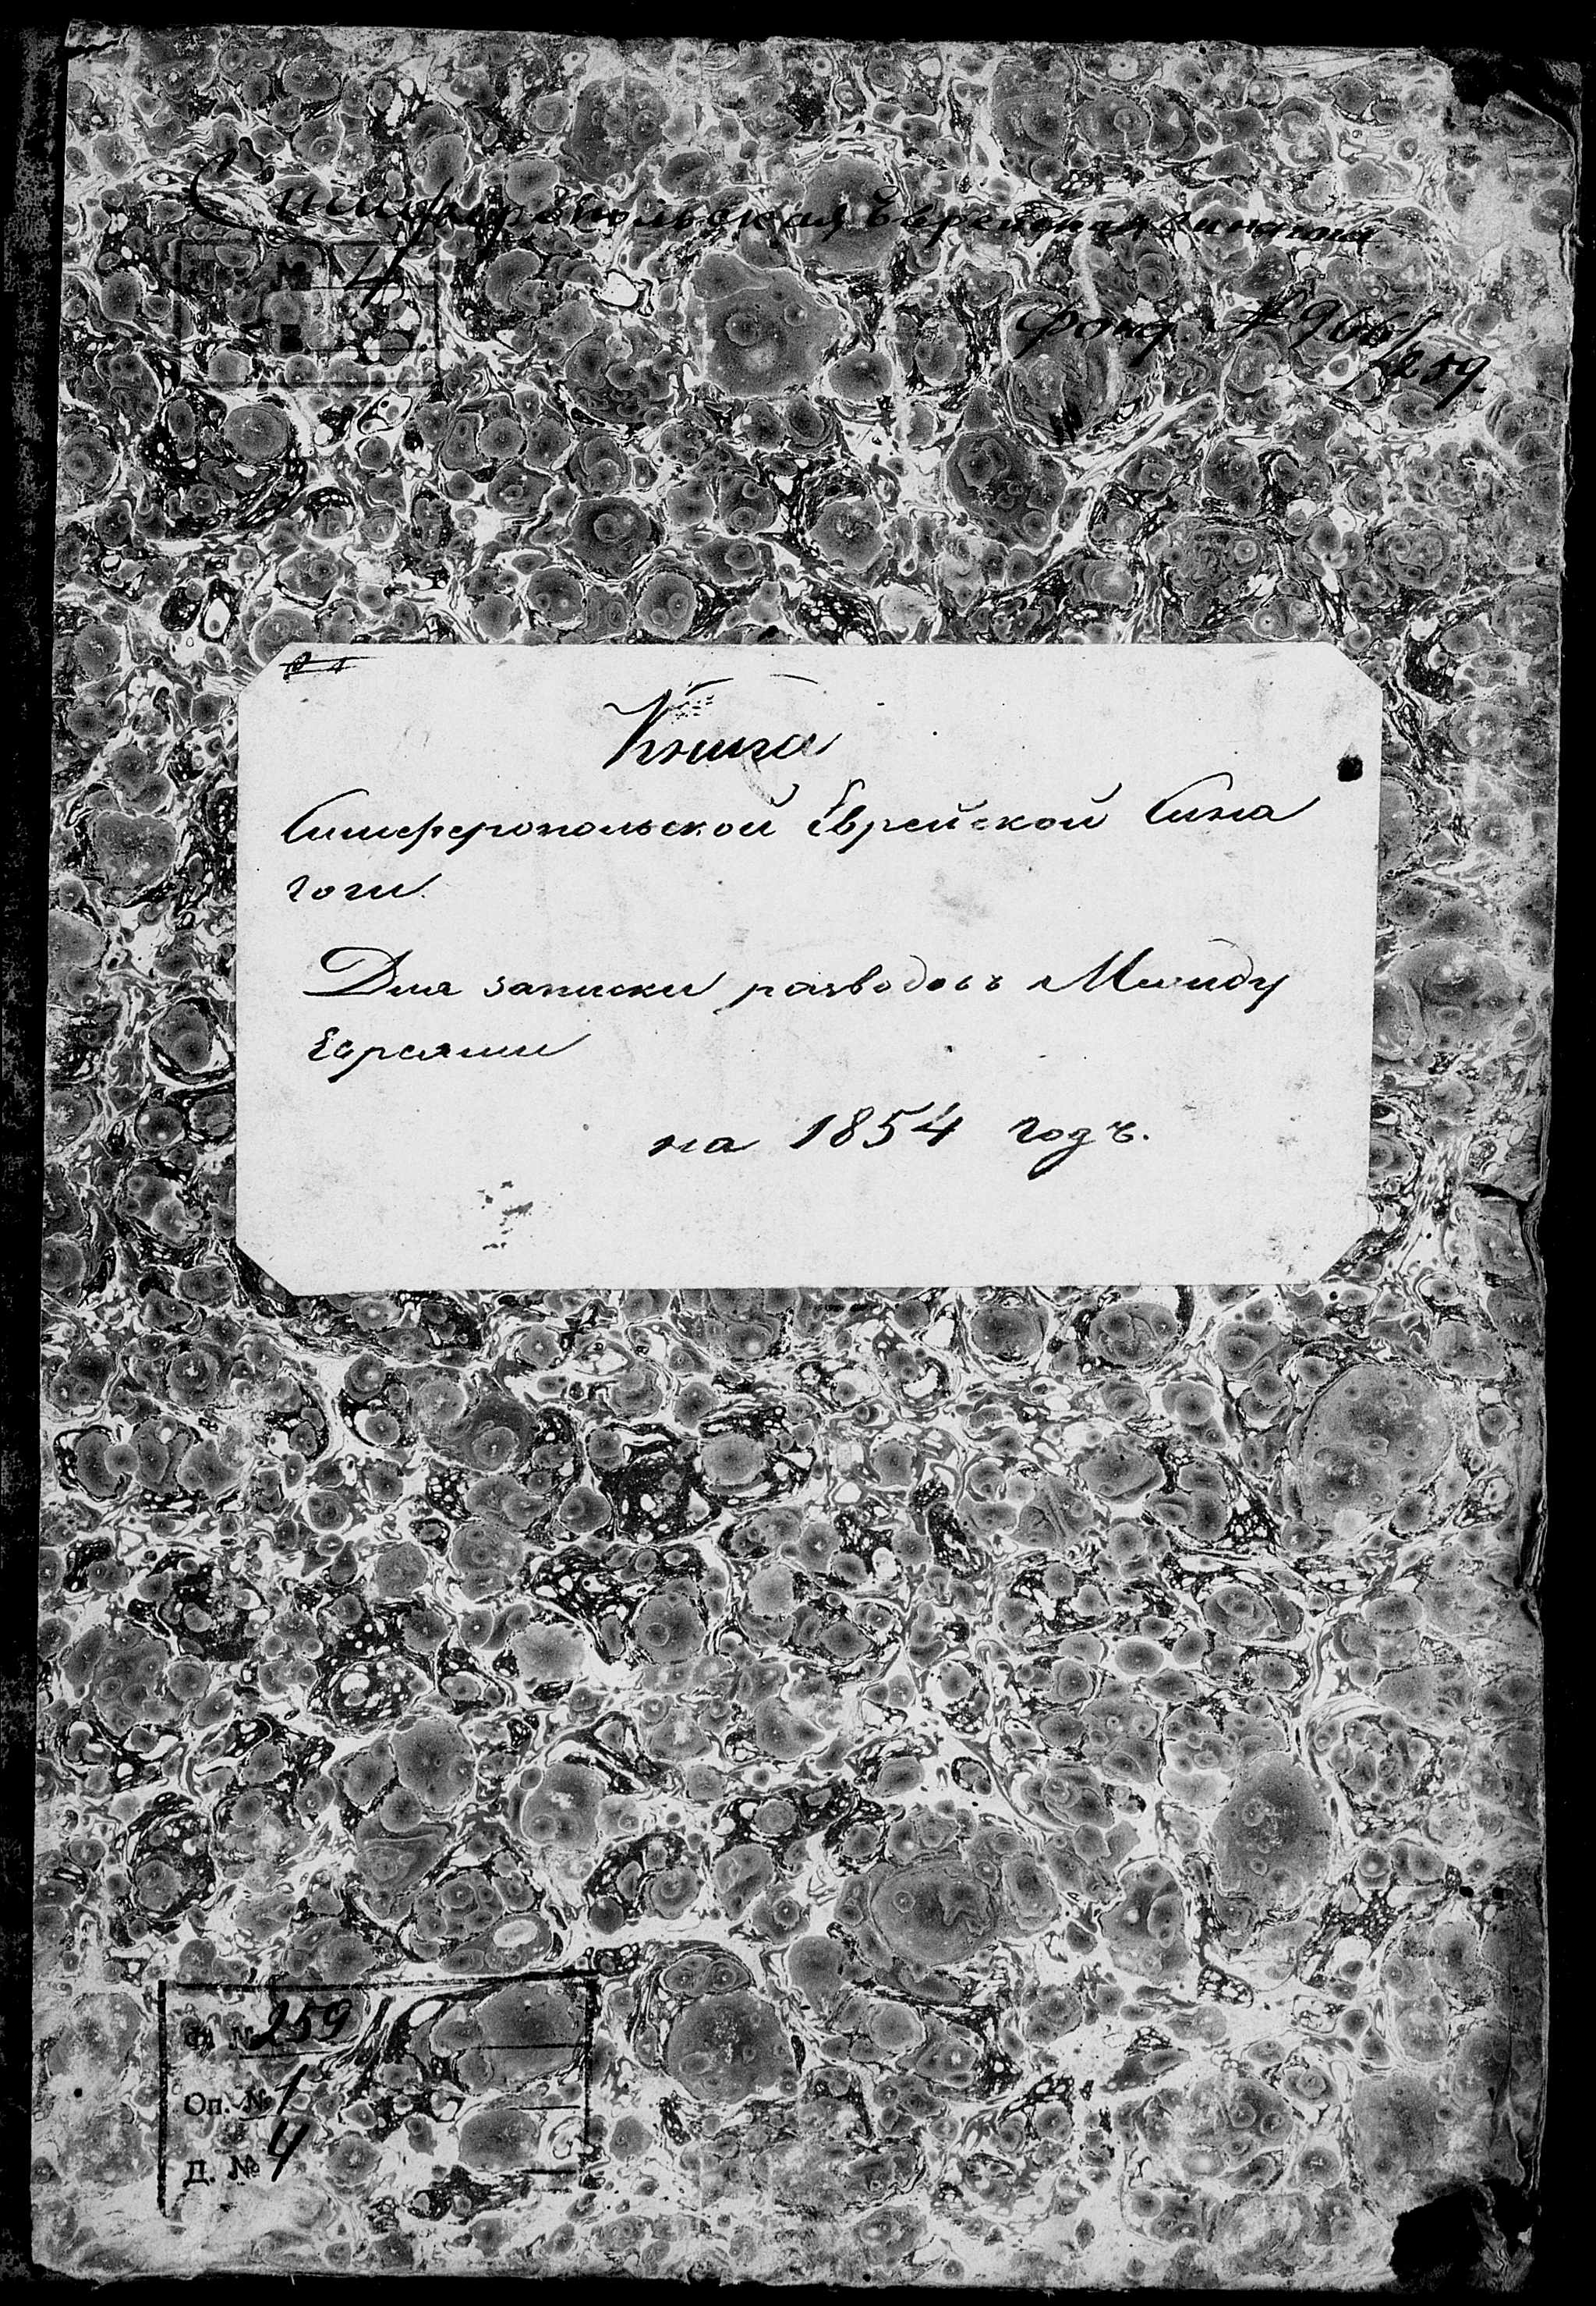 Симферопольская Еврейская синагога
№ 4
Фонд № 966/259.
Книга
Симферопольской Еврейской Сина
гоги.
Для записки разводовъ Между
Евреями
на 1854 годъ.
Ф. № 259
Оп. № 1
Д. № 4